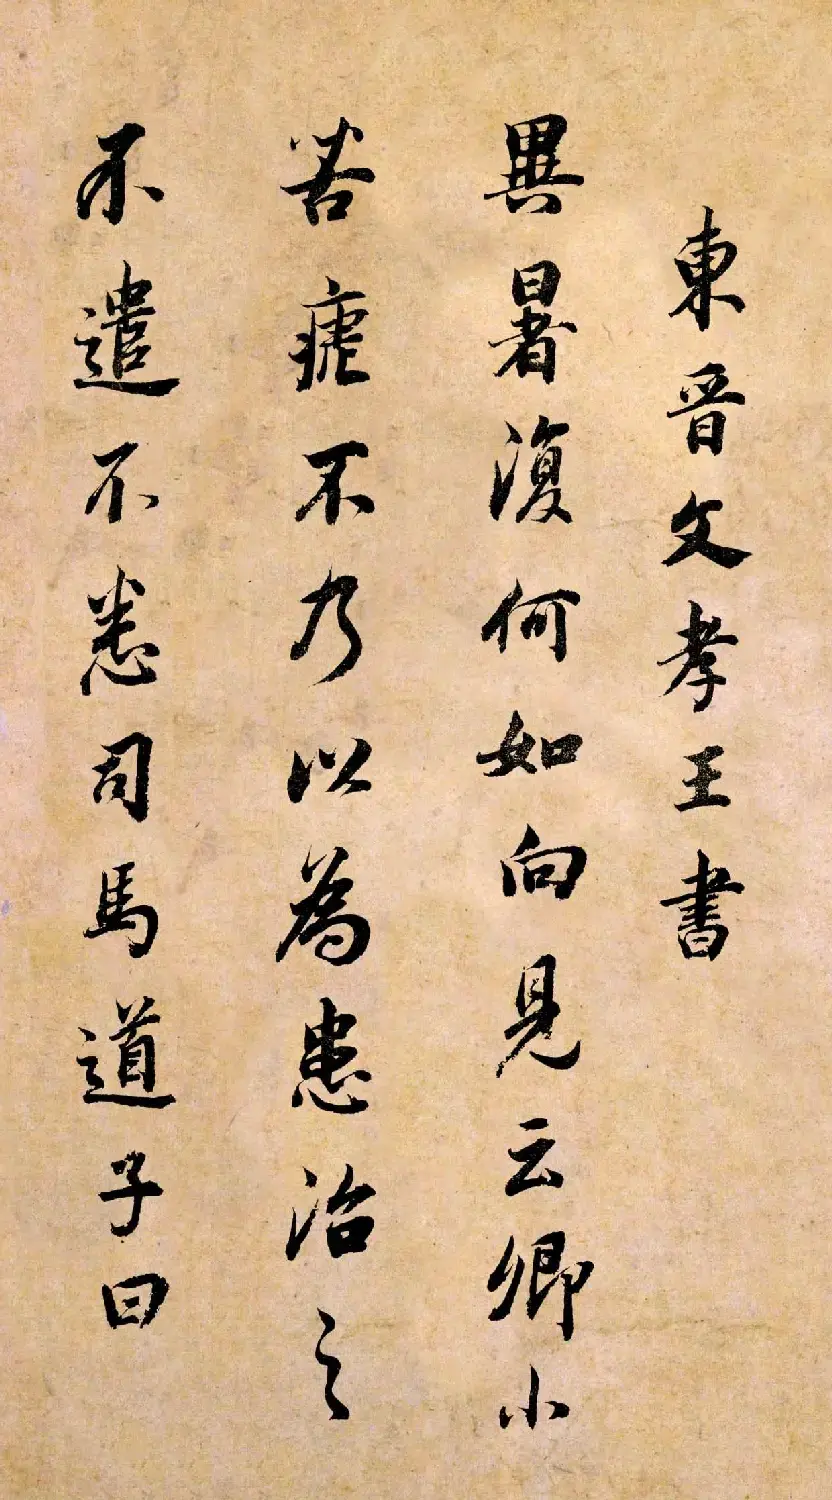 東晉文孝王書
異暑復何如向見云卿小
苦瘧不乃以為患治之
不遣不悉司馬道子曰